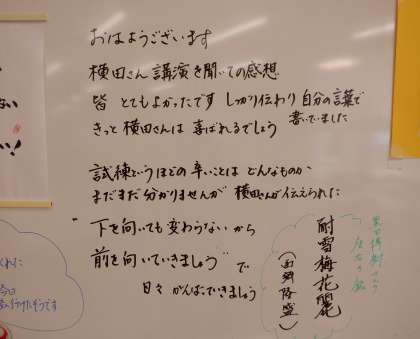 おはようございます
横田さん 講演を聞いての感想
皆 とてもよかったです しっかり伝わり 自分の言葉で
書いていました
きっと 横田さんは 喜ばれるでしょう
試練というほどの辛いことは どんなものか
まだまだ分かりませんが 横田さんが伝えられた
"下を向いても変わらない から
前を向いていきましょう" で
日々 がんばっていきましょう
座右の銘
耐雪梅花麗
(西郷隆盛)
ない
い!
くれに
今日